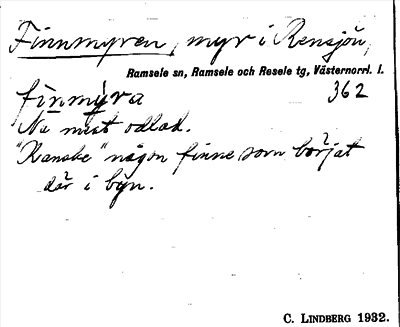 Finnmyren, myr i Rensjön,
Ramsele sn, Ramsele och Resele tg, Västernorrl. l.
finmýra 362
Nu mest odlad.
"Kanske" någon finne som börjat
där i byn.
C. LINDBERG 1932.